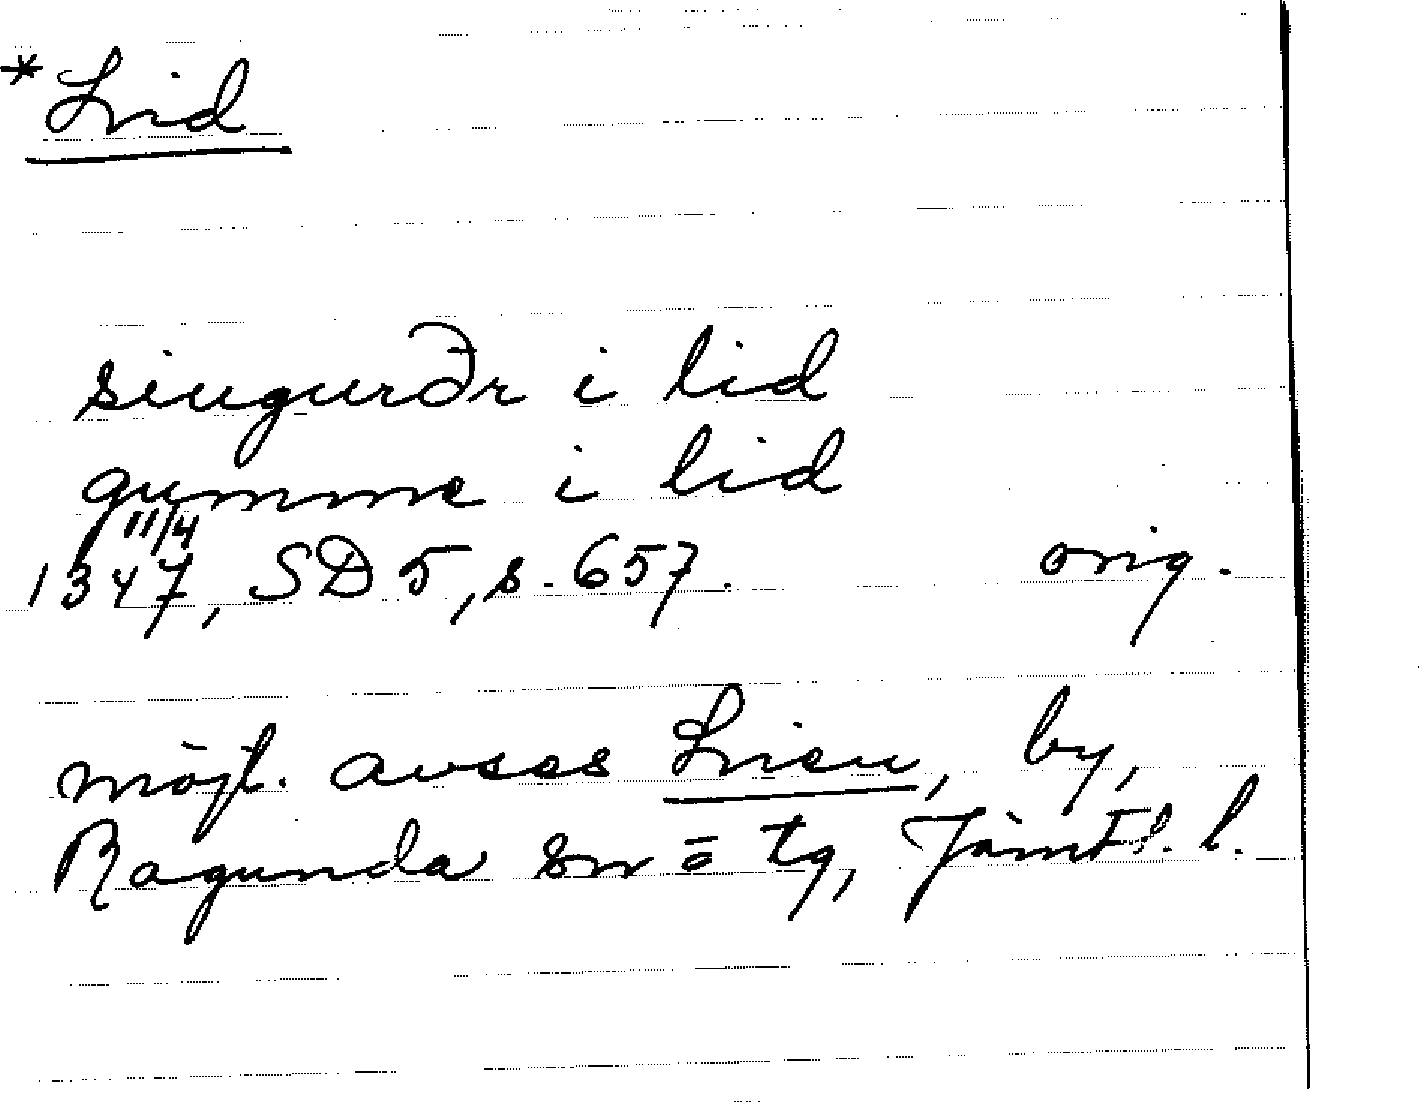 *Lid
siugurðr i lid
gumme i lid
11/4
1347, SD 5, s. 657. orig.
möjl. avses Lien, by,
Ragunda sn o tg, Jämtl. l.